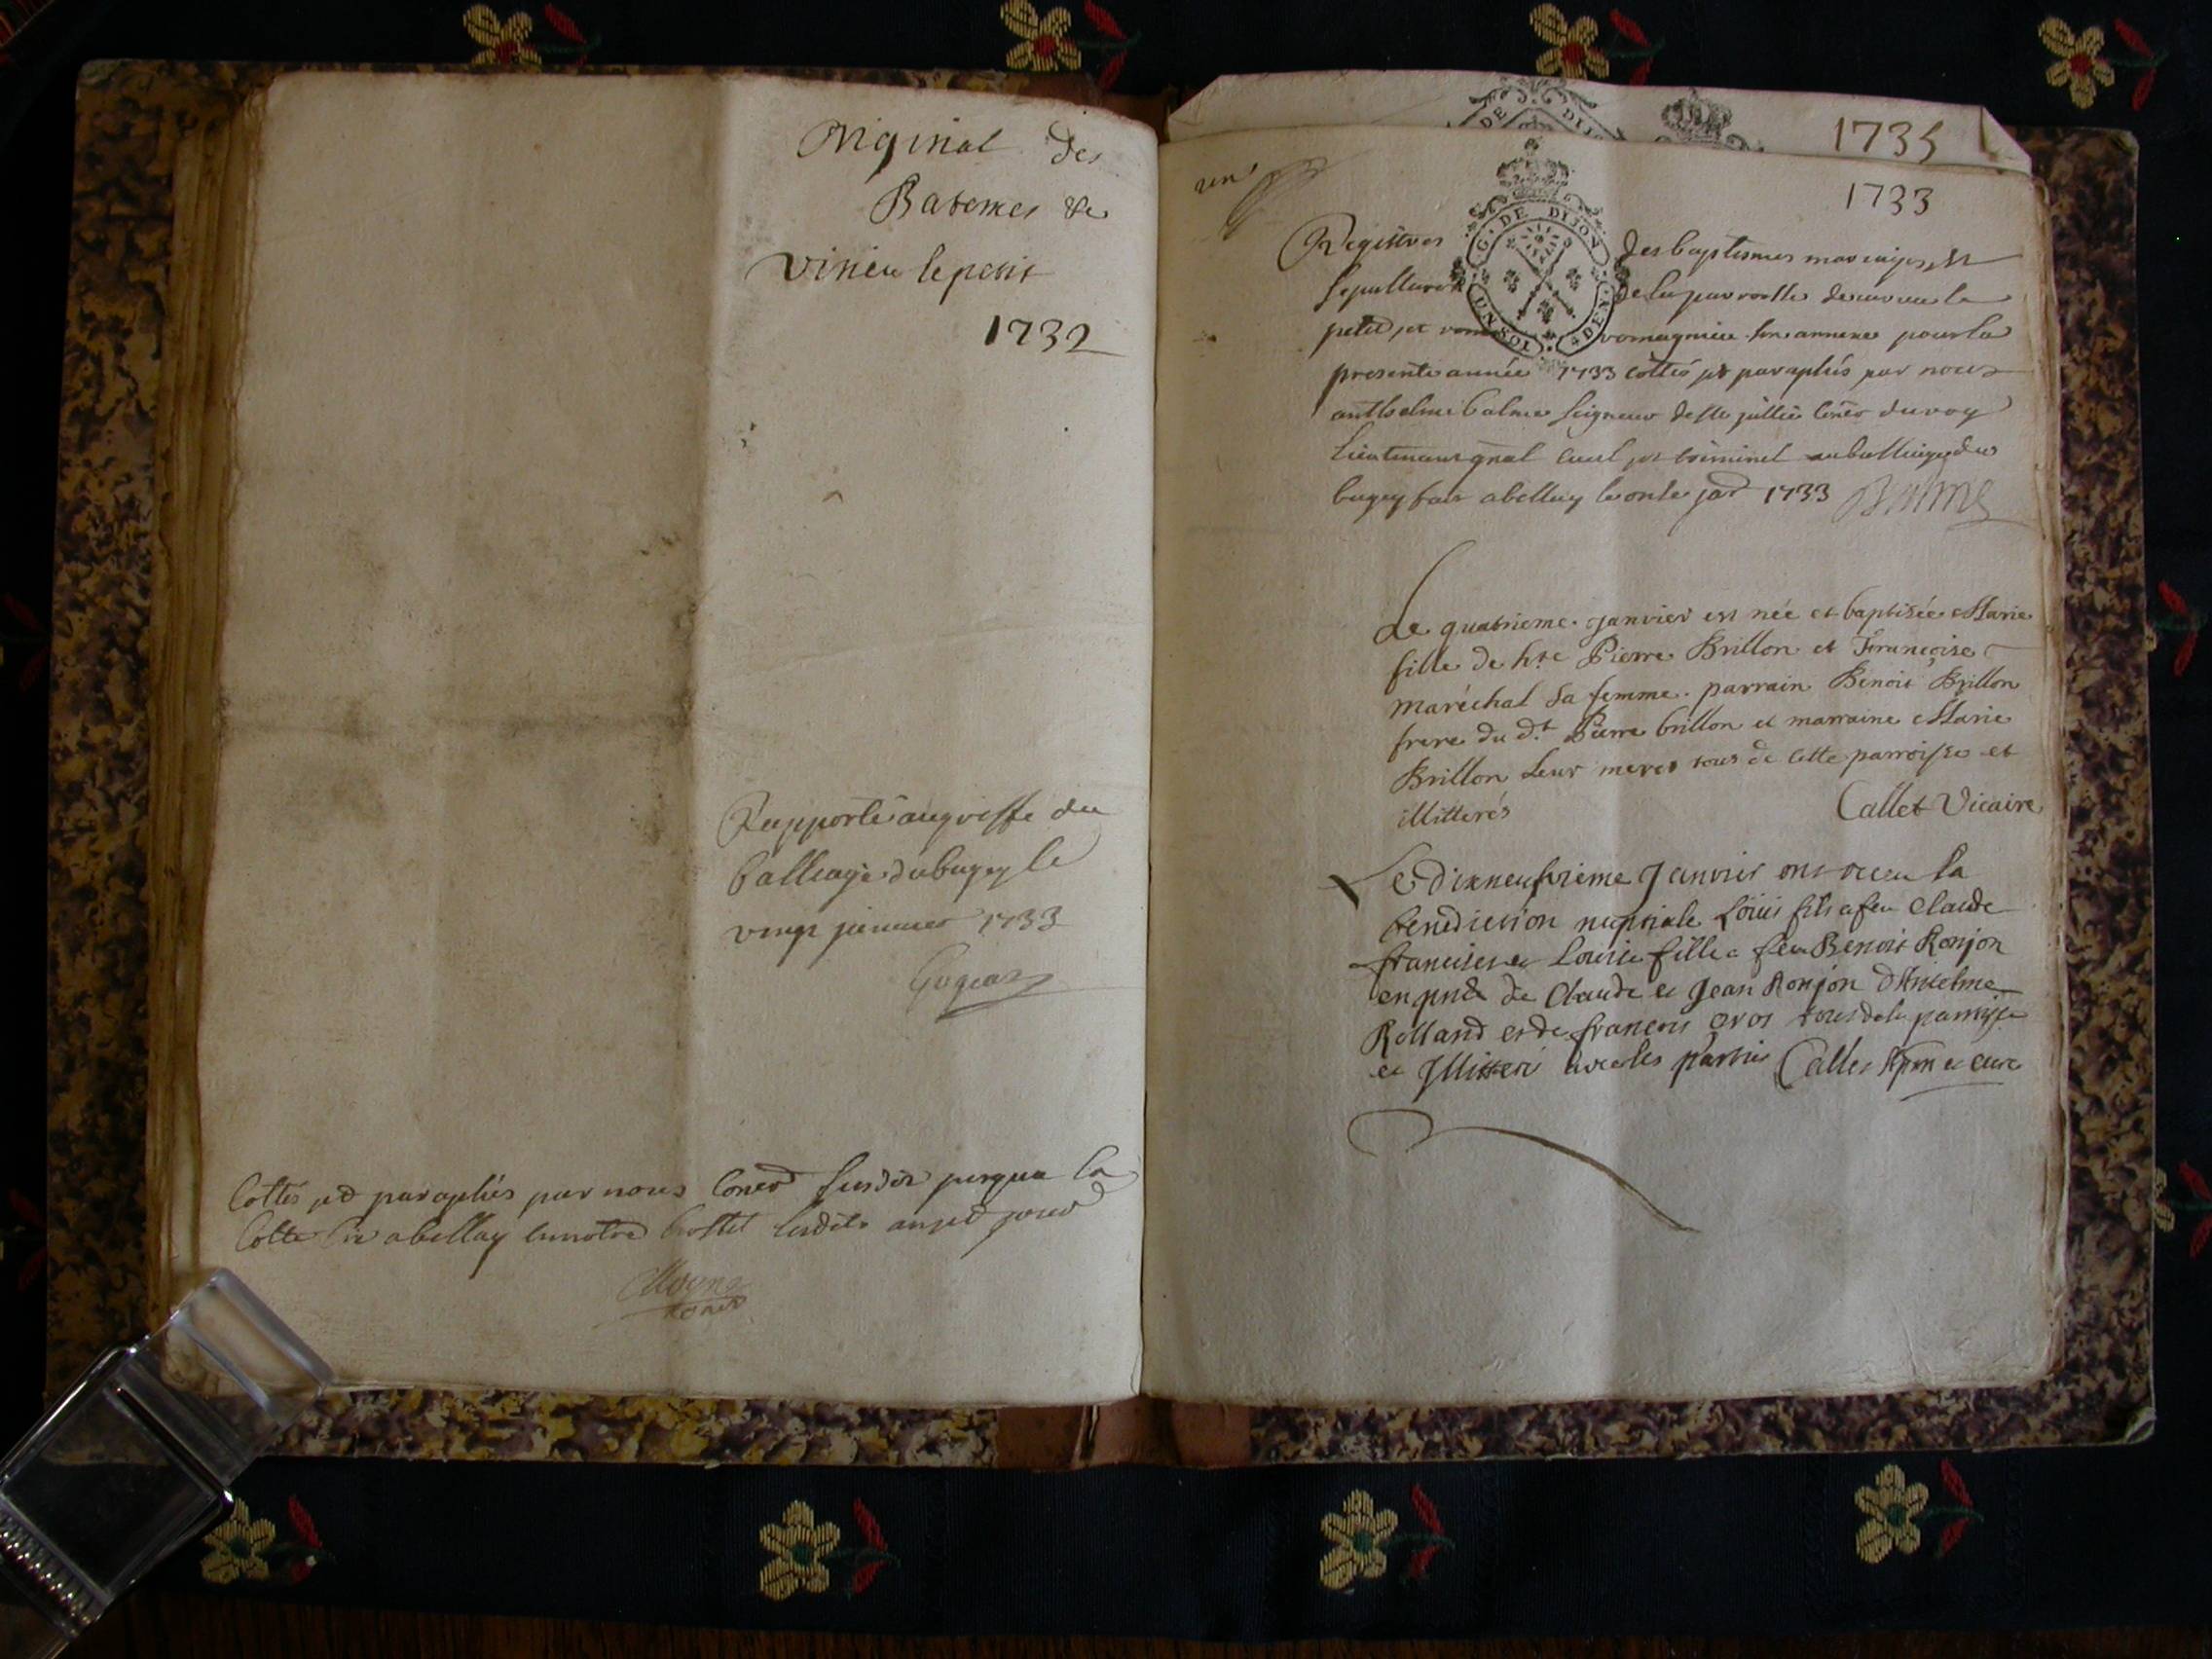 Original des
Batemes de
Virieu le petit
1732
Rapporté au greffe du
balliage du bugey le
vingt janvier 1733
Cottés et paraphés par nous jusqua la
Cotte abellay hostel lesdits an et jour
1735
un
1733
G. DE DIJON
UN SOL 4 DEN.
Registres des baptesmes mariages et
sepultures de la parroisse de virieu le
petit et romagnieu son annexe pour la
presente année 1733 cottés et paraphés par nous
anthelme balme seigneur de Ste jullie du roy
Lieutenant gnal civil et criminel au balliage du
bugey fait abellay le onze 1733 Balme
Le quatrieme janvier est née et baptisée Marie
fille de hte Pierre Brillon et Françoise
maréchal sa femme. parrain Benoit Brillon
frere du dt Pierre brillon et marraine Marie
Brillon leur mere tous de cette parroisse et
illitterés Callet Vicaire
Le dixneufvieme Janvier ont receu la
benediction nuptiale Loüis fils a feu Claude
francises et Louise fille a feu Benoit Ronjon
en pnce de Claude et Jean Ronjon d'Antelme
Rolland et de francois gros tous de la parroisse
et Illitteré avec les parties Callet et curé